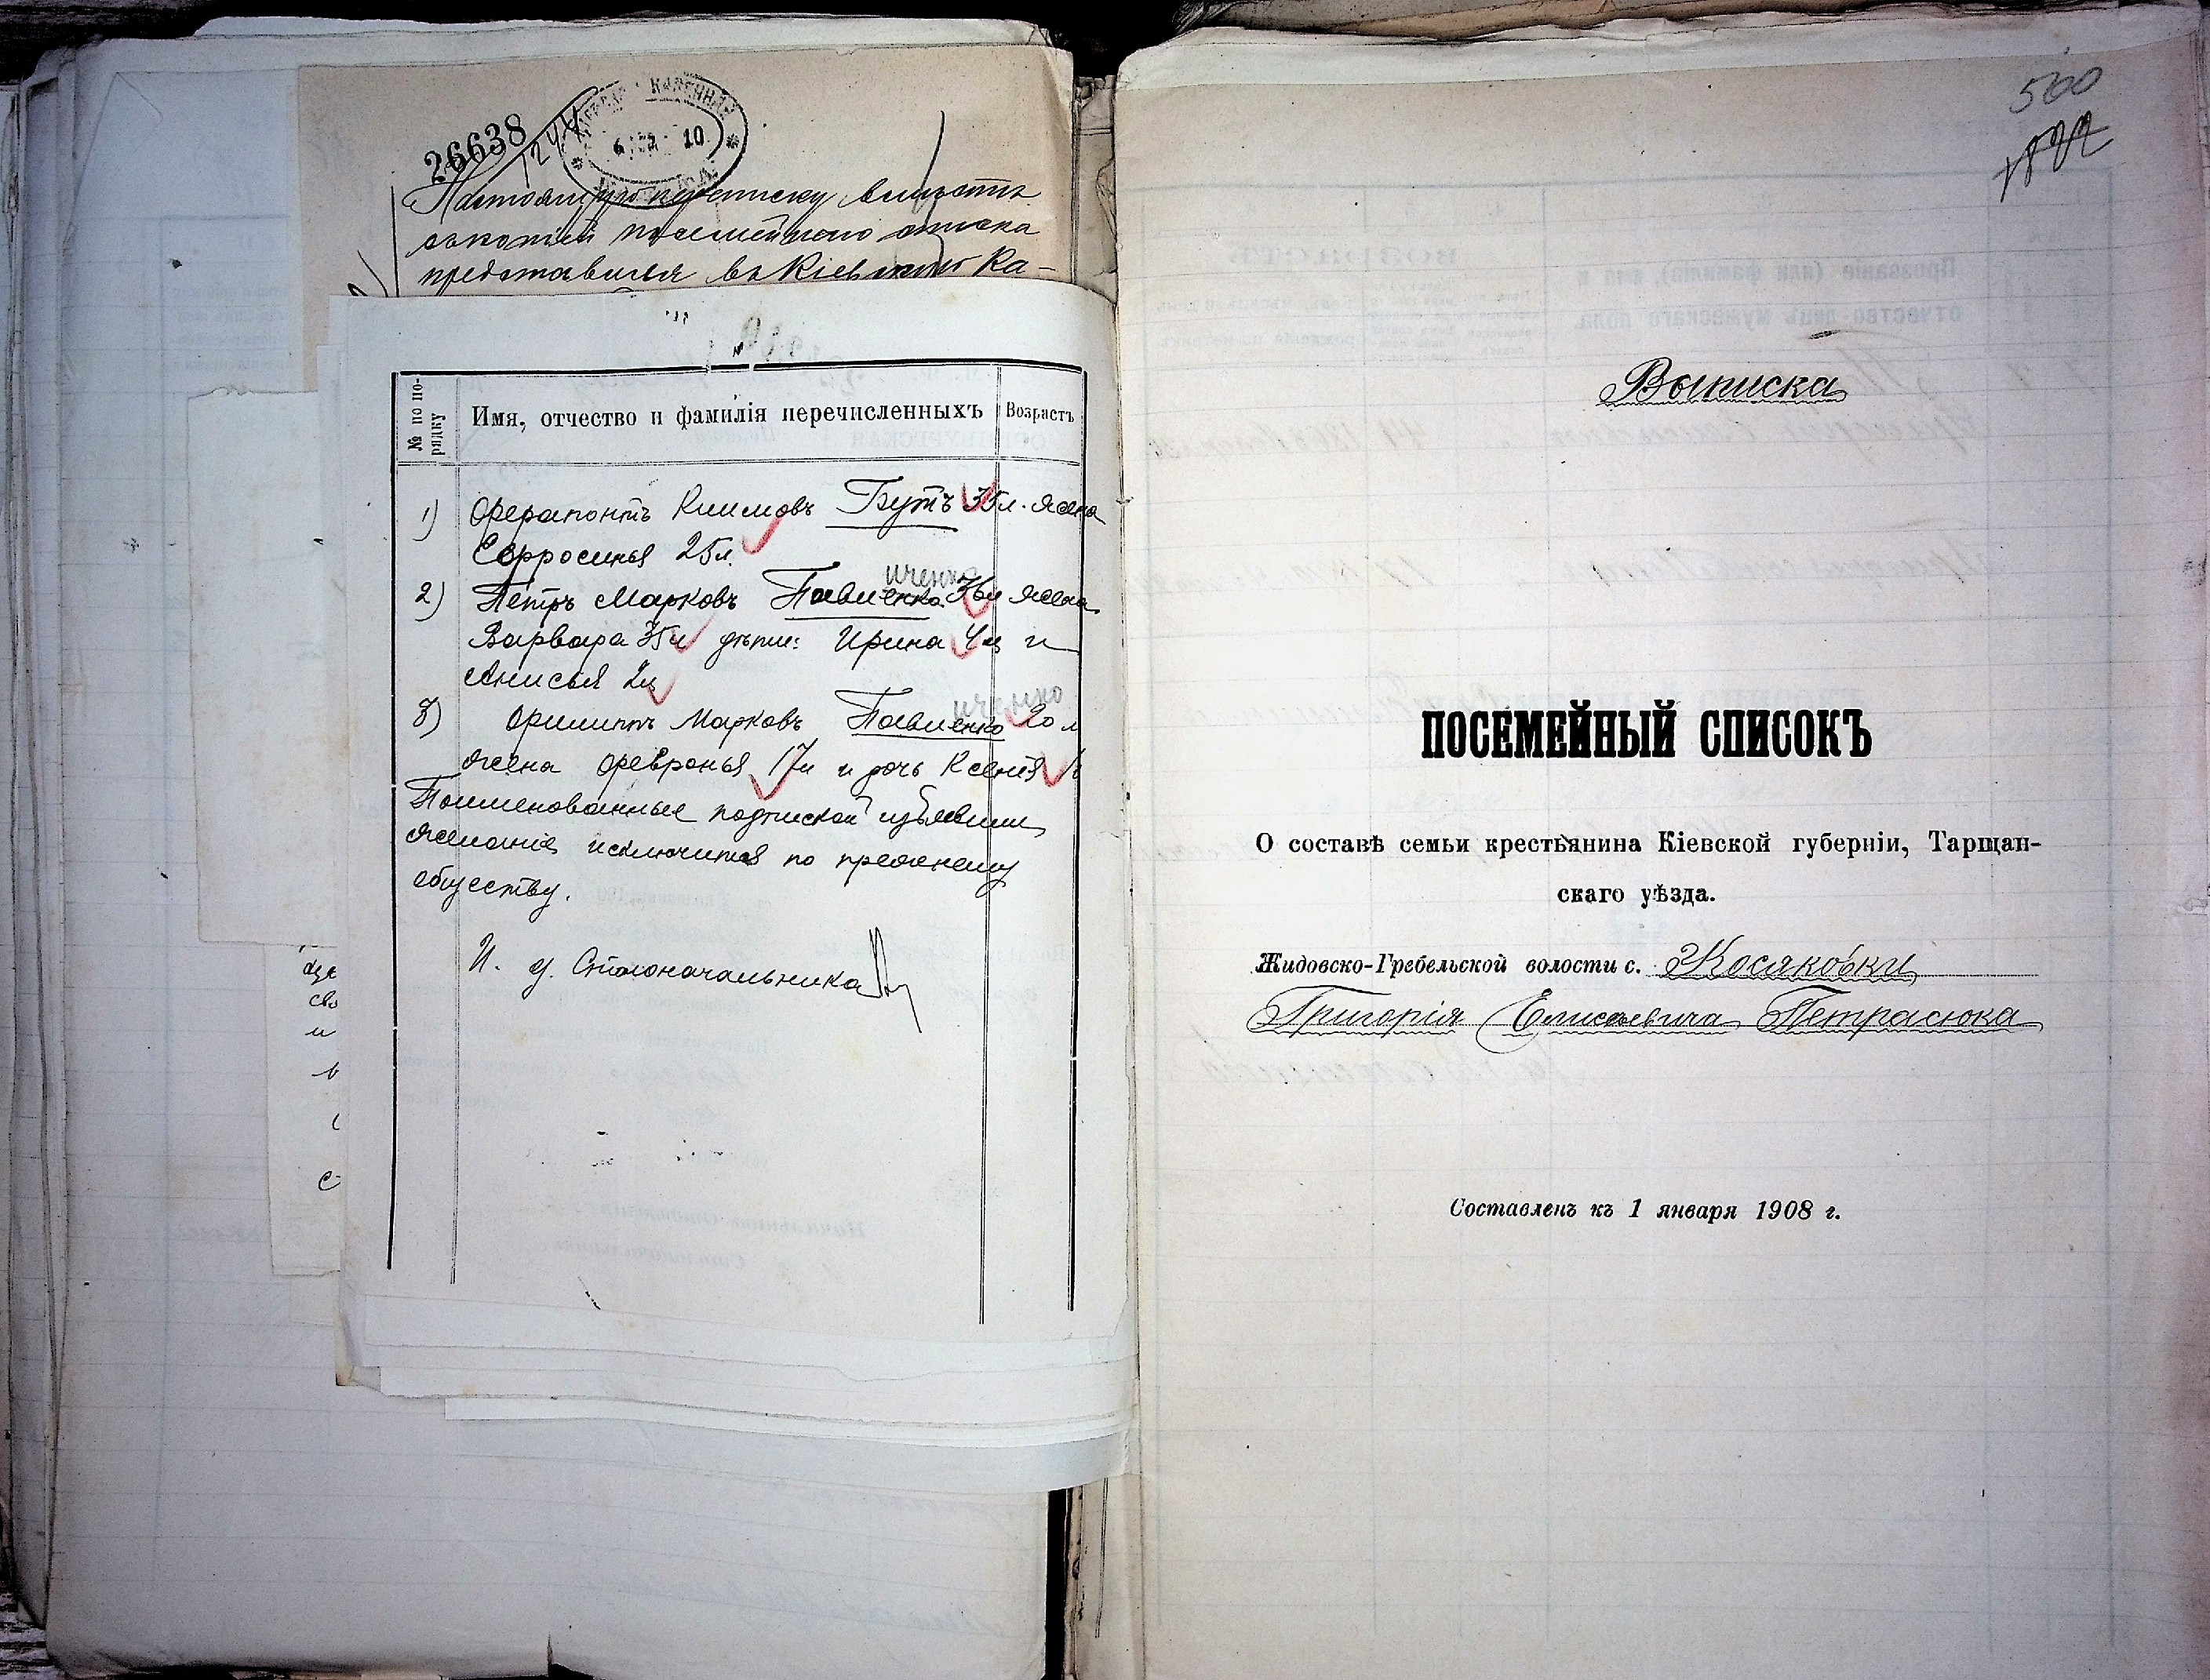 26638
КАЗЕННАЯ
10
Настоящую переписку вместѣ
съ копіей посемейнаго списка
представляя въ Кіевскую Ка-
№ по по-
рядку
Имя, отчество и фамилія перечисленныхъ
Возрастъ
1) Ферапонтъ Климовъ Бутъ 35 л. жена
Евфросинья 25 л.
иченко
2) Петръ Марковъ Павленко 36 л жена
Варвара 35 л дѣти: Ирина 4 л и
Анисья 2 л
иченко
3) Филиппъ Марковъ Павленко 20 л
жена Февронья 17 л и дочь Ксенія
Поименованные подпиской изъявили
желаніе исключится по прежнему
обществу.
И. д. Столоначальника
500
Выписка
ПОСЕМЕЙНЫЙ СПИСОКЪ
О составѣ семьи крестьянина Кіевской губерніи, Таращан-
скаго уѣзда.
Жидовско-Гребельской волости с. Косяковки
Григорія Елисеевича Петрасюка
Составленъ къ 1 января 1908 г.